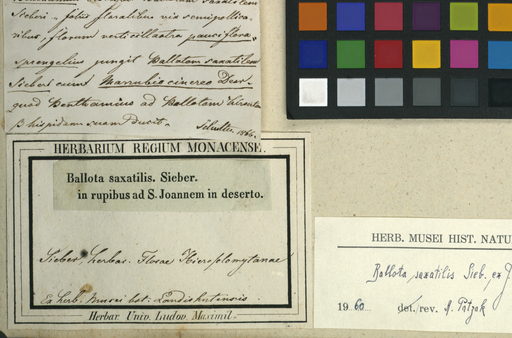 Sieberi, foliis floralibus vix semipollica-
ribus, florum verticillastra pauciflora.
Sprengelius jungit Ballotam saxatilem
Sieberi cum Marrubio cinereo Desr.
quod Benthamius ad Ballotam hirsutam
β hispidam suam ducit.
HERBARIUM REGIUM MONACENSE.
Ballota saxatilis. Sieber.
in rupibus ad S. Joannem in deserto.
Sieber, herbar. Florae Hierosolomytanae
Ex herb. Musei bot. Landishutensis
Herbar. Univ. Ludov. Maximil.
HERB. MUSEI HIST. NATU
Ballota saxatilis Sieb. ex
1960 det./rev. A. Patzak